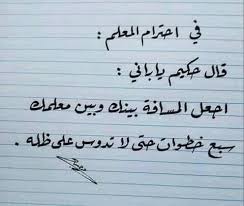 في احترام المعلم :
قال حكيم ياباني :
اجعل المسافة بينك وبين معلمك
سبع خطوات حتى لا تدوس على ظله .